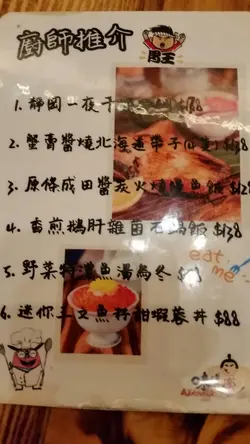 廚師推介
1. 靜岡一夜干
2. 蟹膏醬燒北海道帶子
3. 原條成田醬炭火燒鰻魚飯 $128
4. 香煎鵝肝雜菌石鍋飯 $138
5. 野菜特濃魚湯烏冬
eat me
6. 迷你三文魚籽甜蝦蓉丼 $88